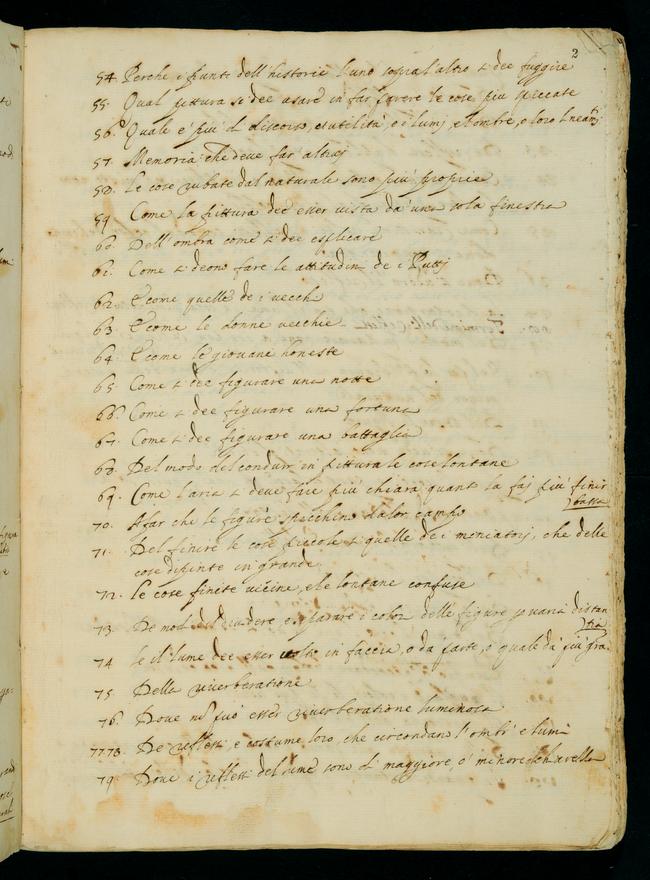 2
54 Perche i punti dell'historie l'uno sopra l'altro si dee fuggire
55. Qual pittura si dee usare in far parere le cose più speccate
56. Quale è più di discorso, et utilità, o i lumi, e l'ombre, o loro lineamti
57. Memoria che deve far' altrui
58. Le cose rubate dal naturale sono più proprie
59. Come la pittura dee esser vista da una sola finestra
60. Dell'ombra come si dee esplicare
61. Come si deono fare le attitudin de i Putti
62. E come quelle de i vecchi
63. E come le donne vecchie
64. E come le giovane honeste
65. Come si dee figurare una notte
66. Come si dee figurare una fortuna
67. Come si dee figurare una battaglia
68. Del modo del condurr in pittura le cose lontane
69. Come l'aria si deve fare più chiara quanto la fai più finir
bassa
70. A far che le figure specchino da lor campo
71. Del finire le cose piccole et quelle de i meniatori, che delle
cose dipinte in grande
72. Le cose finite vicine, e le lontane confuse
73. De modi del dividere e separare i colori delle figure p varia distan
tia
74 Se il lume dee esser tolto in faccia, o da parte, o quale dà più gra.
75. Della riverberatione
76. Dove nō può esser riverberatione luminosa
7778. De reflessi, e costume loro, che circondano l'ombr e lumi
79. Dove i reflessi del lume sono di maggiore, o minore chiarella